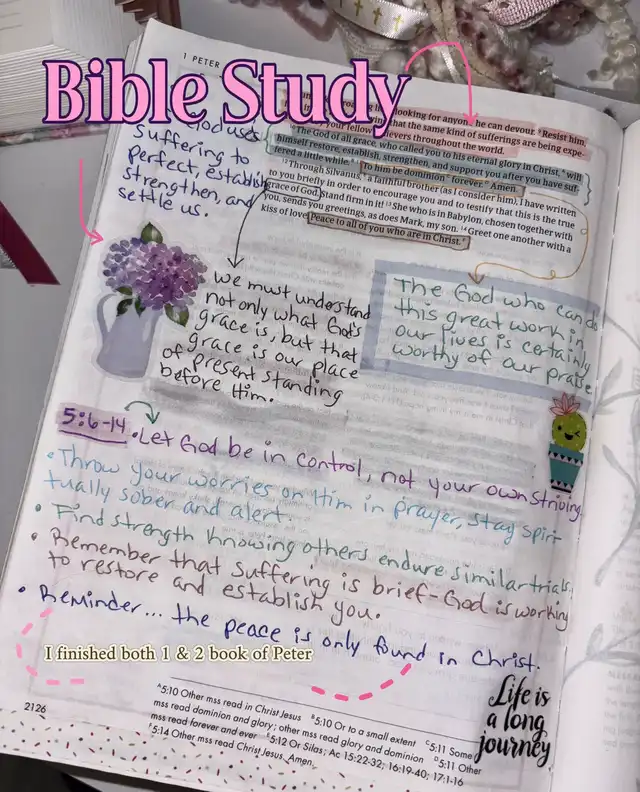 1 PETER
Bible Study
looking for anyone he can devour. Resist him,
that the same kind of sufferings are being expe-
your fellow believers throughout the world.
The God of all grace, who called you to his eternal glory in Christ, will
himself restore, establish, strengthen, and support you after you have suf-
fered a little while. To him be dominion forever. Amen.
Through Silvanus, a faithful brother (as I consider him), I have written
to you briefly in order to encourage you and to testify that this is the true
grace of God. Stand firm in it! She who is in Babylon, chosen together with
you, sends you greetings, as does Mark, my son. Greet one another with a
kiss of love. Peace to all of you who are in Christ.
God uses
suffering to
perfect, establish
strengthen, and
settle us.
we must understand
not only what God's
grace is, but that
grace is our place
of present standing
before Him.
The God who can do
this great work in
our lives is certainly
worthy of our praise
5:6-14 • Let God be in control, not your own striving.
• Throw your worries on Him in prayer, stay spiri-
tually sober and alert.
• Find strength knowing others endure similar trials.
• Remember that suffering is brief - God is working
to restore and establish you.
• Reminder... the peace is only found in Christ.
I finished both 1 & 2 book of Peter
Life is
a long
journey
A 5:10 Other mss read in Christ Jesus B 5:10 Or to a small extent C 5:11 Some
mss read dominion and glory; other mss read glory and dominion D 5:11 Other
mss read forever and ever E 5:12 Or Silas; Ac 15:22-32; 16:19-40; 17:1-16
F 5:14 Other mss read Christ Jesus. Amen.
2126